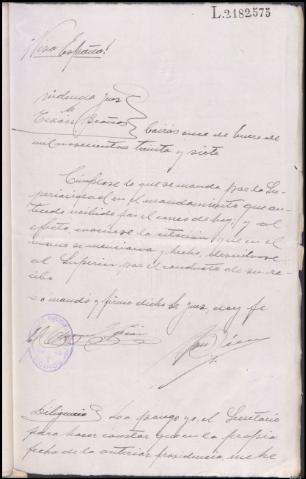 L.2182575
¡Viva España!
Providencia Juez
Sr
Eirós enero de
mil novecientos treinta y siete
Cúmplase lo que se manda por la Su-
perioridad en el mandamiento que an-
tecede recibido por el correo de hoy; y al
efecto la citación que en el
mismo se menciona y hecho, devuélvase
al Superior por el conducto de su re-
cibo
Lo mandó y firma dicho Sr Juez, doy fe
Diligencia Lo pongo yo, el Secretario
para hacer constar que en la propia
fecha de la anterior providencia me he